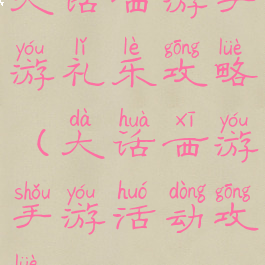 大话西游手
yóu lǐ lè gōng lüè
游礼乐攻略
dà huà xī yóu
（大话西游
shǒu yóu huó dòng gōng
手游活动攻
lüè